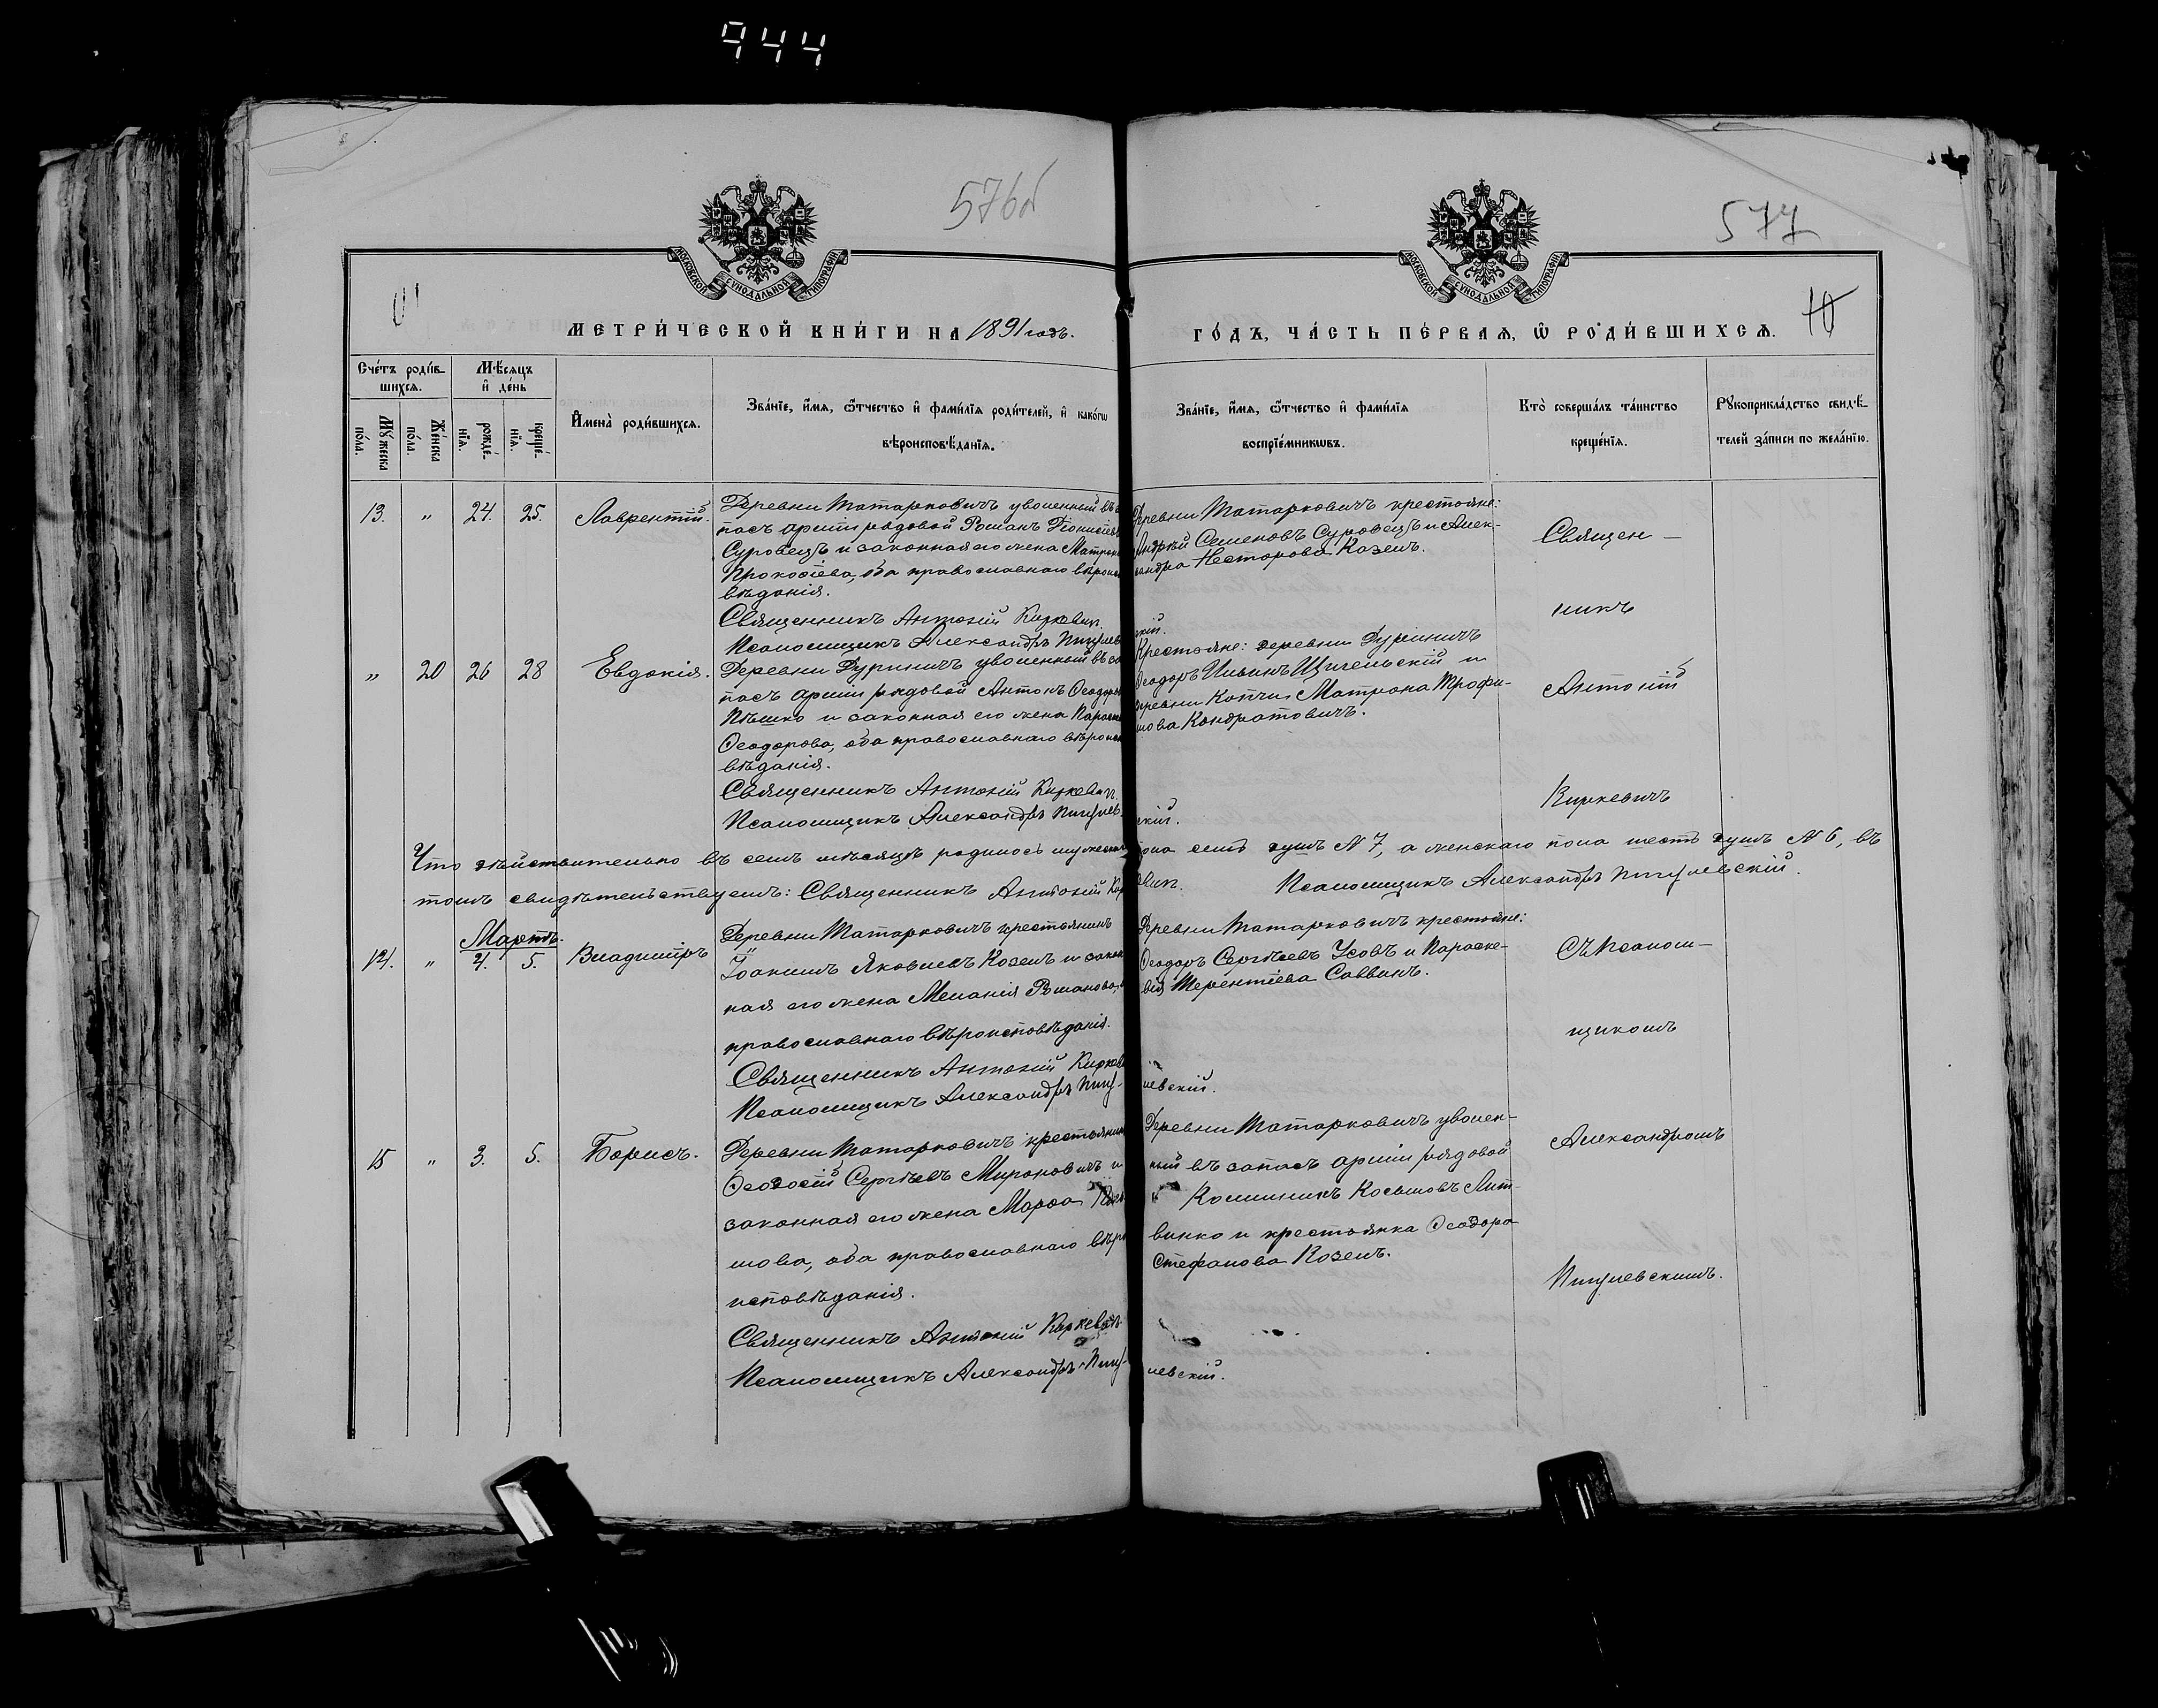 944
576б
577
10
МОСКОВСКОЙ СѴНОДАЛЬНОЙ ТИПОГРАФІИ
МОСКОВСКОЙ СѴНОДАЛЬНОЙ ТИПОГРАФІИ
МЕТРИ́ЧЕСКОЙ КНИ́ГИ НА 1891 годъ.
ГО́ДЪ, ЧА́СТЬ ПЕ́РВАѦ, Ѡ РОДИ́ВШИХСѦ.
Сче́тъ роди́в-
шихсѧ.
Мѣ́сѧцъ
и҆ де́нь
Мꙋ́жеска
по́ла.
Же́нска
по́ла.
рожде́-
нїѧ.
креще́-
нїѧ.
И҆мена̀ роди́вшихсѧ.
Зва́нїе, и҆́мѧ, ѻ҆́тчество и҆ фами́лїѧ роди́телей, и҆ како́гѡ
вѣроисповѣ́данїѧ.
Зва́нїе, и҆́мѧ, ѻ҆́тчество и҆ фами́лїѧ
воспрїе́мникѡвъ.
Кто̀ соверша́лъ та́инство
креще́нїѧ.
Рꙋкоприкла́дство свидѣ́-
телей за́писи по жела́нїю.
13. " 24. 25. Лаврентій.
Деревни Татарковичъ уволенный въ
пасъ арміи рядовой Романъ Діонисіевъ
Суровецъ и законная его жена Матрона
Прокофіева, оба православнаго вѣроиспо
вѣданія.
Священникъ Антоній Киркевич
Псаломщикъ Александръ
Деревни Татарковичъ крестьяне:
Андрей Семеновъ Суровецъ и Алек-
сандра Несторова Козелъ.
скій.
Священ-
никъ
" 20 26 28 Евдокія.
Деревни Дуриничъ уволенный въ за
пасъ арміи рядовой Антонъ Ѳеодоровъ
Пѣшко и законная его жена Параске
Ѳеодорова, оба православнаго вѣроиспо
вѣданія.
Священникъ Антоній Киркевич
Псаломщикъ Александръ
Крестьяне: деревни Дуриничъ
Ѳеодоръ Ильинъ и
деревни Матрона Трофи-
мова Кондратовичъ.
скій.
Антоній
Киркевичъ
Что дѣйствительно въ семъ мѣсяцѣ родилось мужескаго пола семь душъ № 7, а женскаго пола шесть душъ № 6, въ
томъ свидѣтельствуемъ: Священникъ Антоній Киркевич. Псаломщикъ Александръ
Мартъ.
14. " 4. 5. Владиміръ
Деревни Татарковичъ крестьянинъ
Іоакимъ Яковлевъ Козелъ и закон
ная его жена Меланія Романова,
православнаго вѣроисповѣданія.
Священникъ Антоній Киркевич
Псаломщикъ Александръ
Деревни Татарковичъ крестьяне:
Ѳеодоръ Сергѣевъ Усовъ и Параске-
вія Терентіева Саввинъ.
левскій.
Съ псалом-
щикомъ
15 " 3. 5. Борисъ.
Деревни Татарковичъ крестьянинъ
Ѳеодосій Сергѣевъ Мироновичъ и
законная его жена Марѳа
мова, оба православнаго вѣро
исповѣданія.
Священникъ Антоній Киркевич.
Псаломщикъ Александръ
Деревни Татарковичъ уволен-
ный въ запасъ арміи рядовой
Косьмовъ Лит-
винко и крестьянка Ѳеодора
Стефанова Козелъ.
левскій.
Александромъ